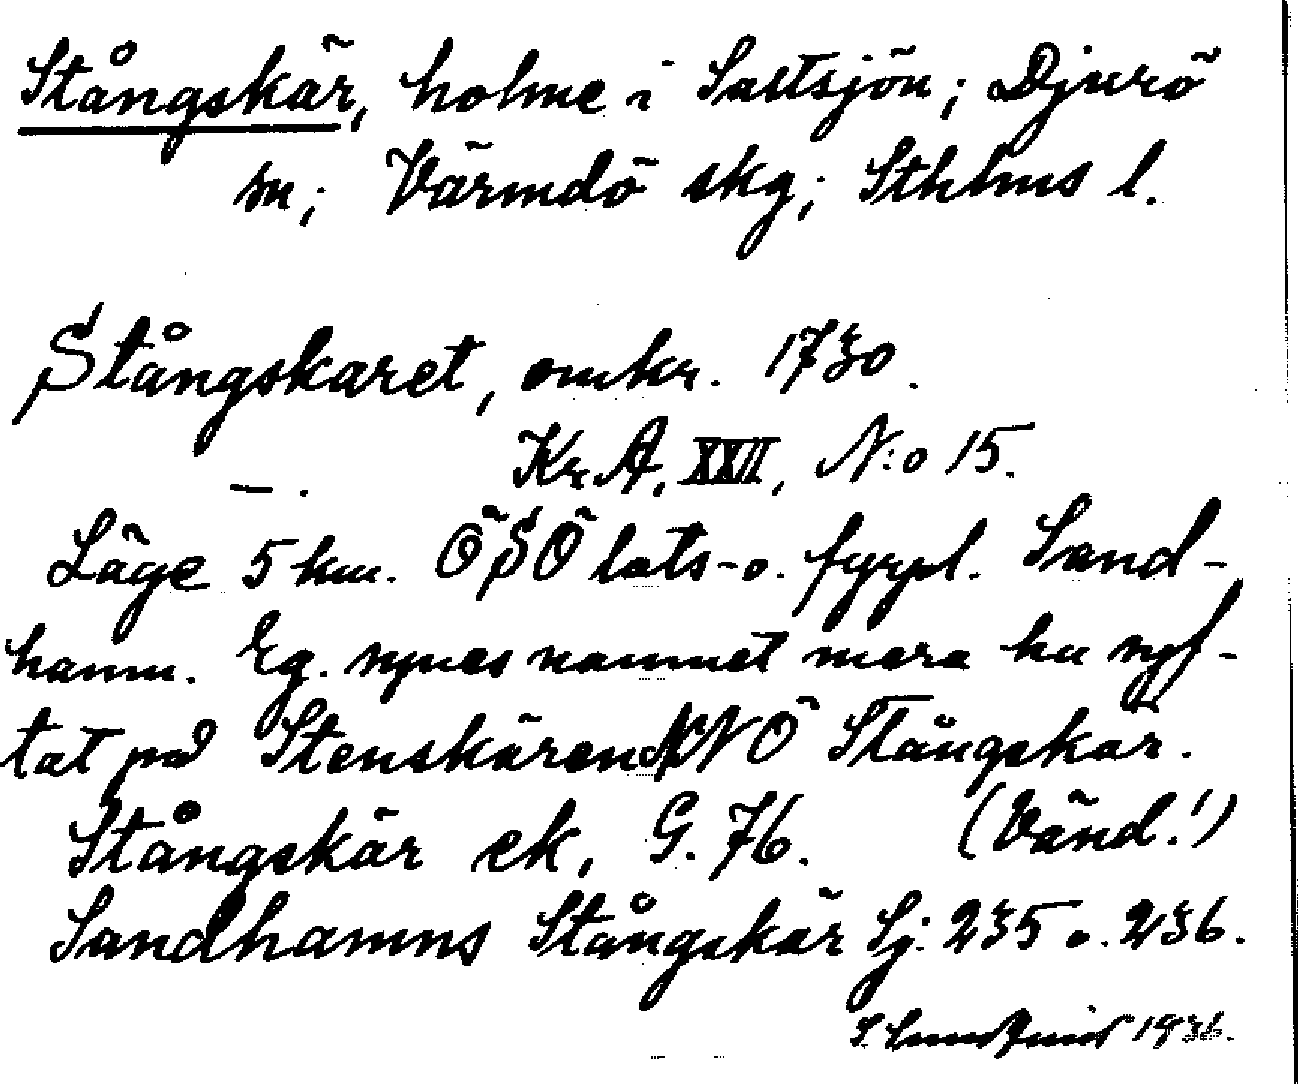 Stångskär, holme i Saltsjön; Djurö
sn; Värmdö skg; Sthlms l.
Stångskaret, omkr. 1730.
Kr. A, XXII, N:o 15.
— .
Läge 5 km. ÖSÖ lots- o. fyrpl. Sand-
hamn. Eg. synes namnet mera ha syf-
tat på Stenskären NNO Stångskär.
Stångskär ek, G. 76. (Vänd!)
Sandhamns Stångskär Sj: 235 o. 236.
1936.